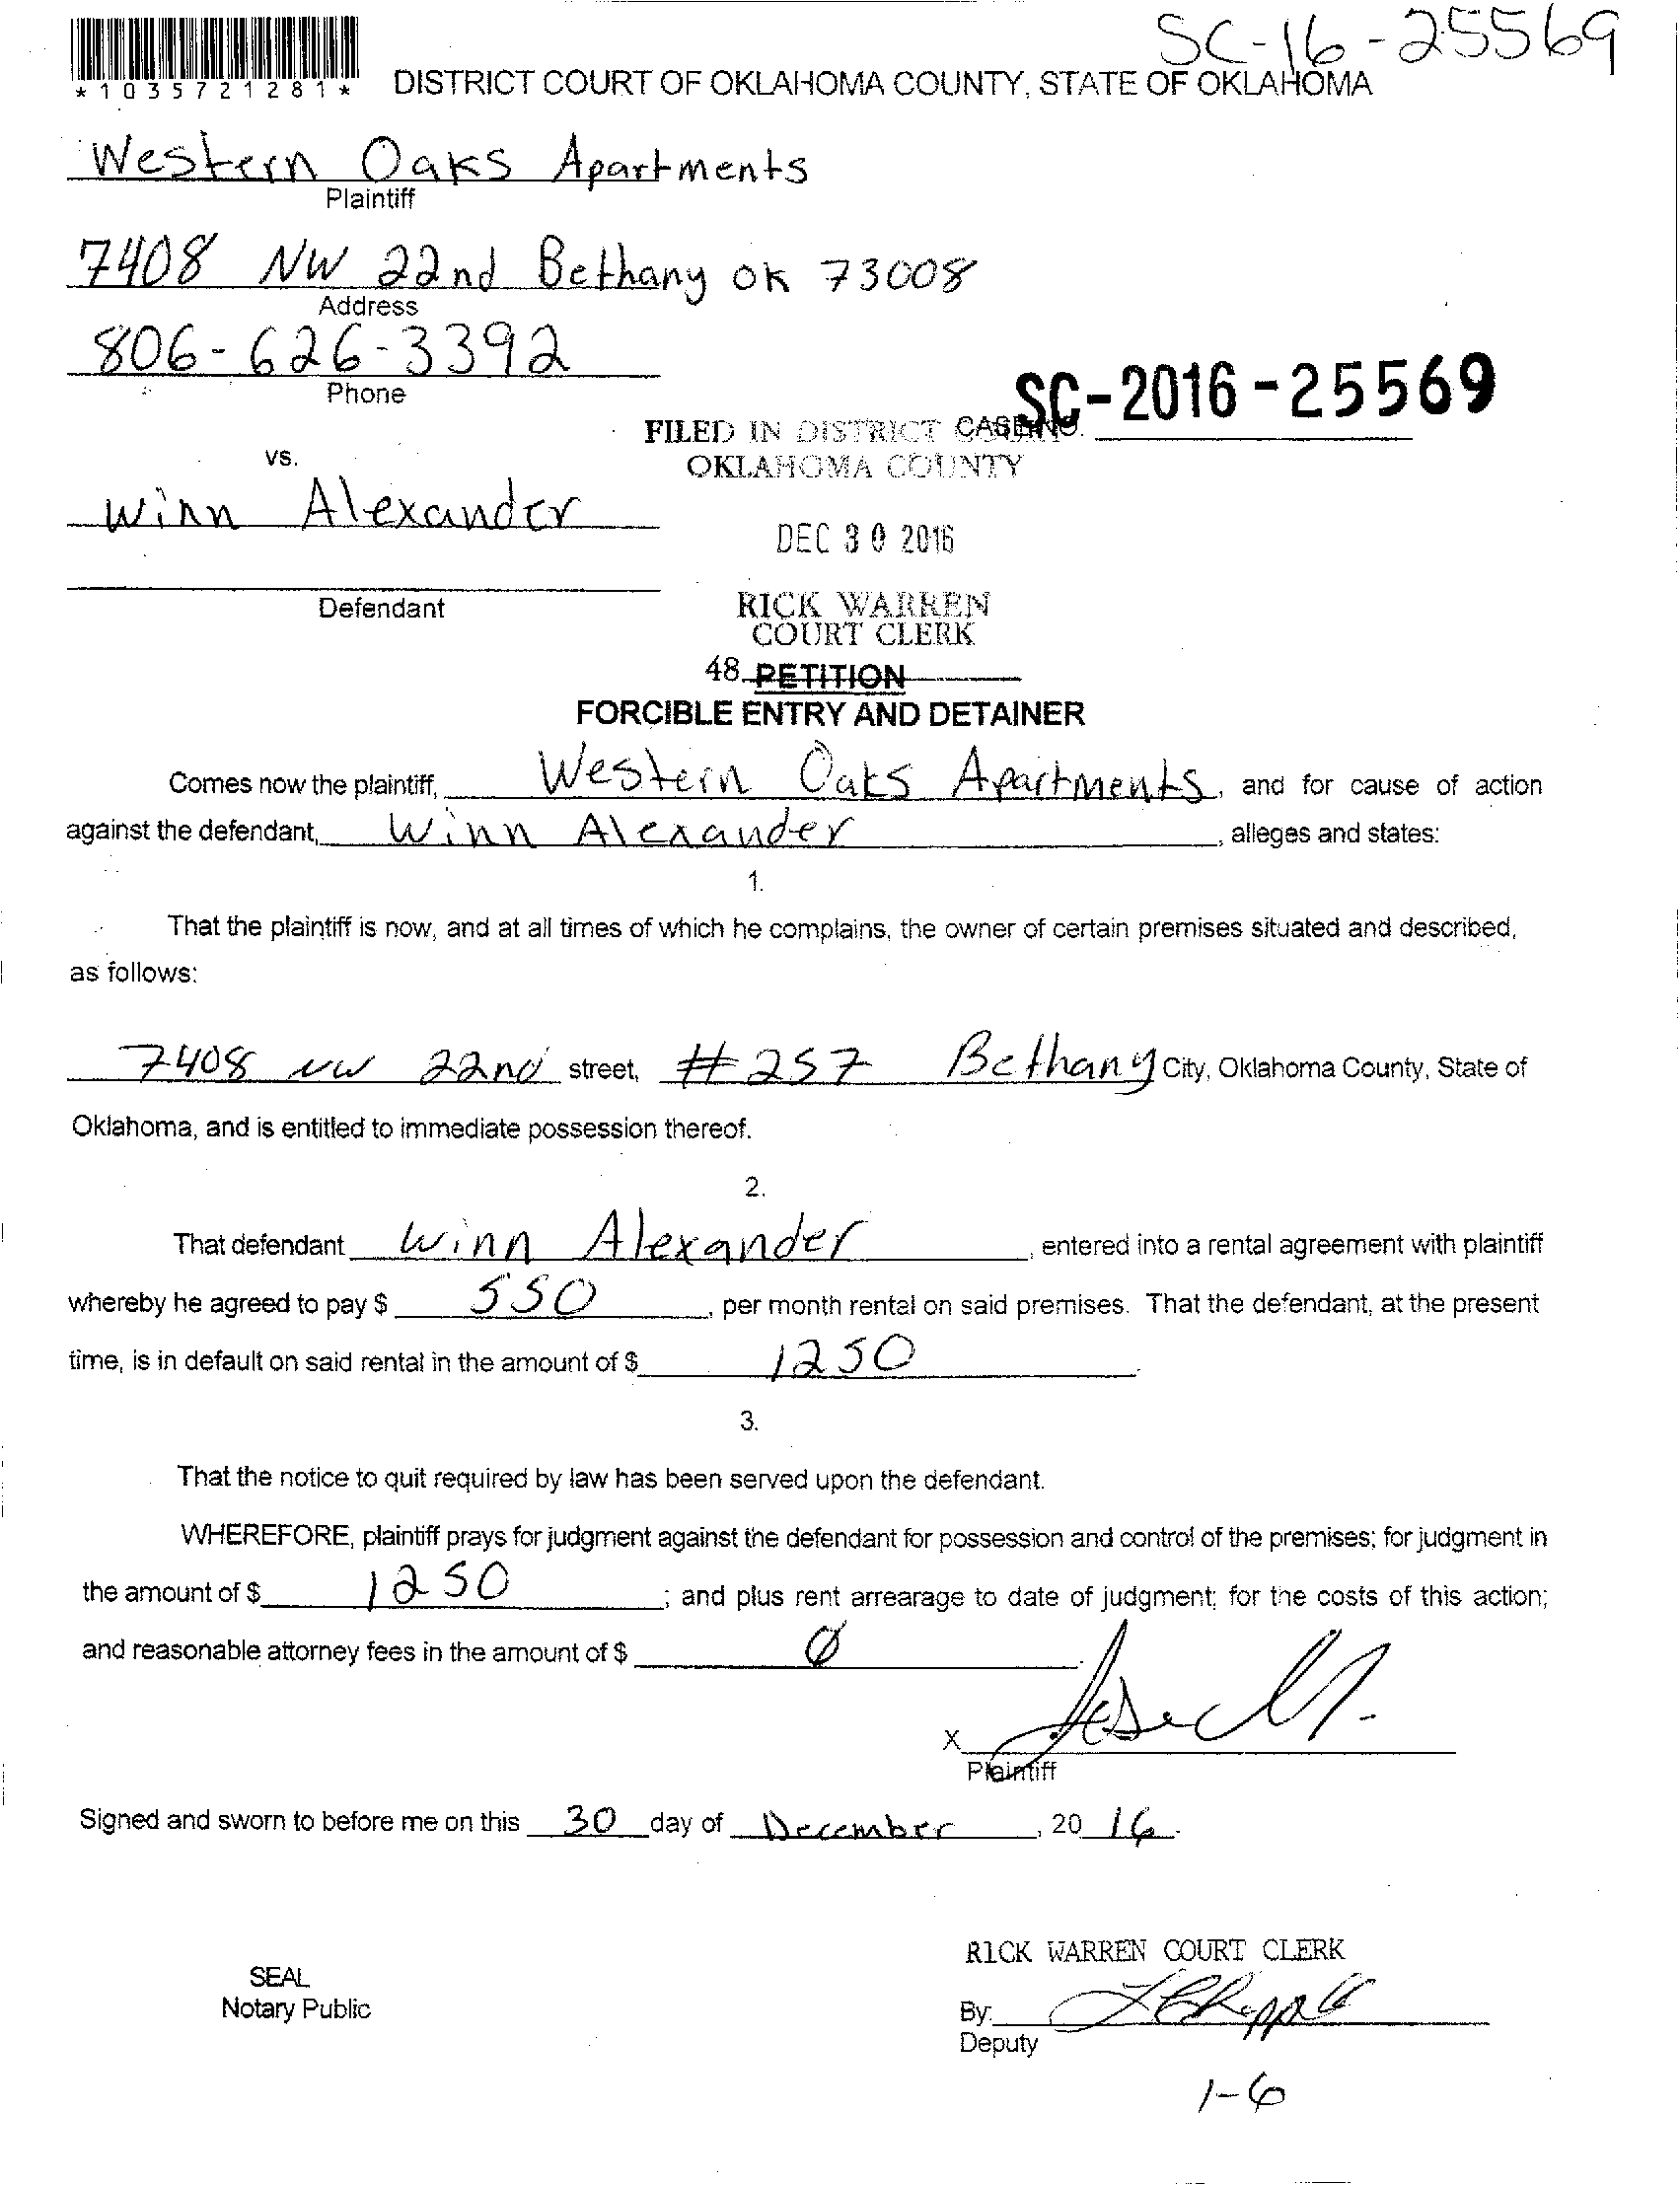 SC-16-25569
*1035721281*
DISTRICT COURT OF OKLAHOMA COUNTY, STATE OF OKLAHOMA
Western Oaks Apartments
Plaintiff
7408 NW 22nd Bethany OK 73008
Address
806-626-3392
Phone
SC-2016-25569
FILED IN DISTRICT CASE NO.
OKLAHOMA COUNTY
vs.
Winn Alexander
DEC 30 2016
Defendant
RICK WARREN
COURT CLERK
48 PETITION
FORCIBLE ENTRY AND DETAINER
Comes now the plaintiff, Western Oaks Apartments, and for cause of action
against the defendant, Winn Alexander, alleges and states:
1.
That the plaintiff is now, and at all times of which he complains, the owner of certain premises situated and described,
as follows:
7408 NW 22nd street, #257 Bethany City, Oklahoma County, State of
Oklahoma, and is entitled to immediate possession thereof.
2.
That defendant Winn Alexander, entered into a rental agreement with plaintiff
whereby he agreed to pay $ 550, per month rental on said premises. That the defendant, at the present
time, is in default on said rental in the amount of $ 1250.
3.
That the notice to quit required by law has been served upon the defendant.
WHEREFORE, plaintiff prays for judgment against the defendant for possession and control of the premises; for judgment in
the amount of $ 1250; and plus rent arrearage to date of judgment; for the costs of this action;
and reasonable attorney fees in the amount of $ Ø.
X
Plaintiff
Signed and sworn to before me on this 30 day of December, 20 16.
RICK WARREN COURT CLERK
SEAL
Notary Public
By:
Deputy
1-6